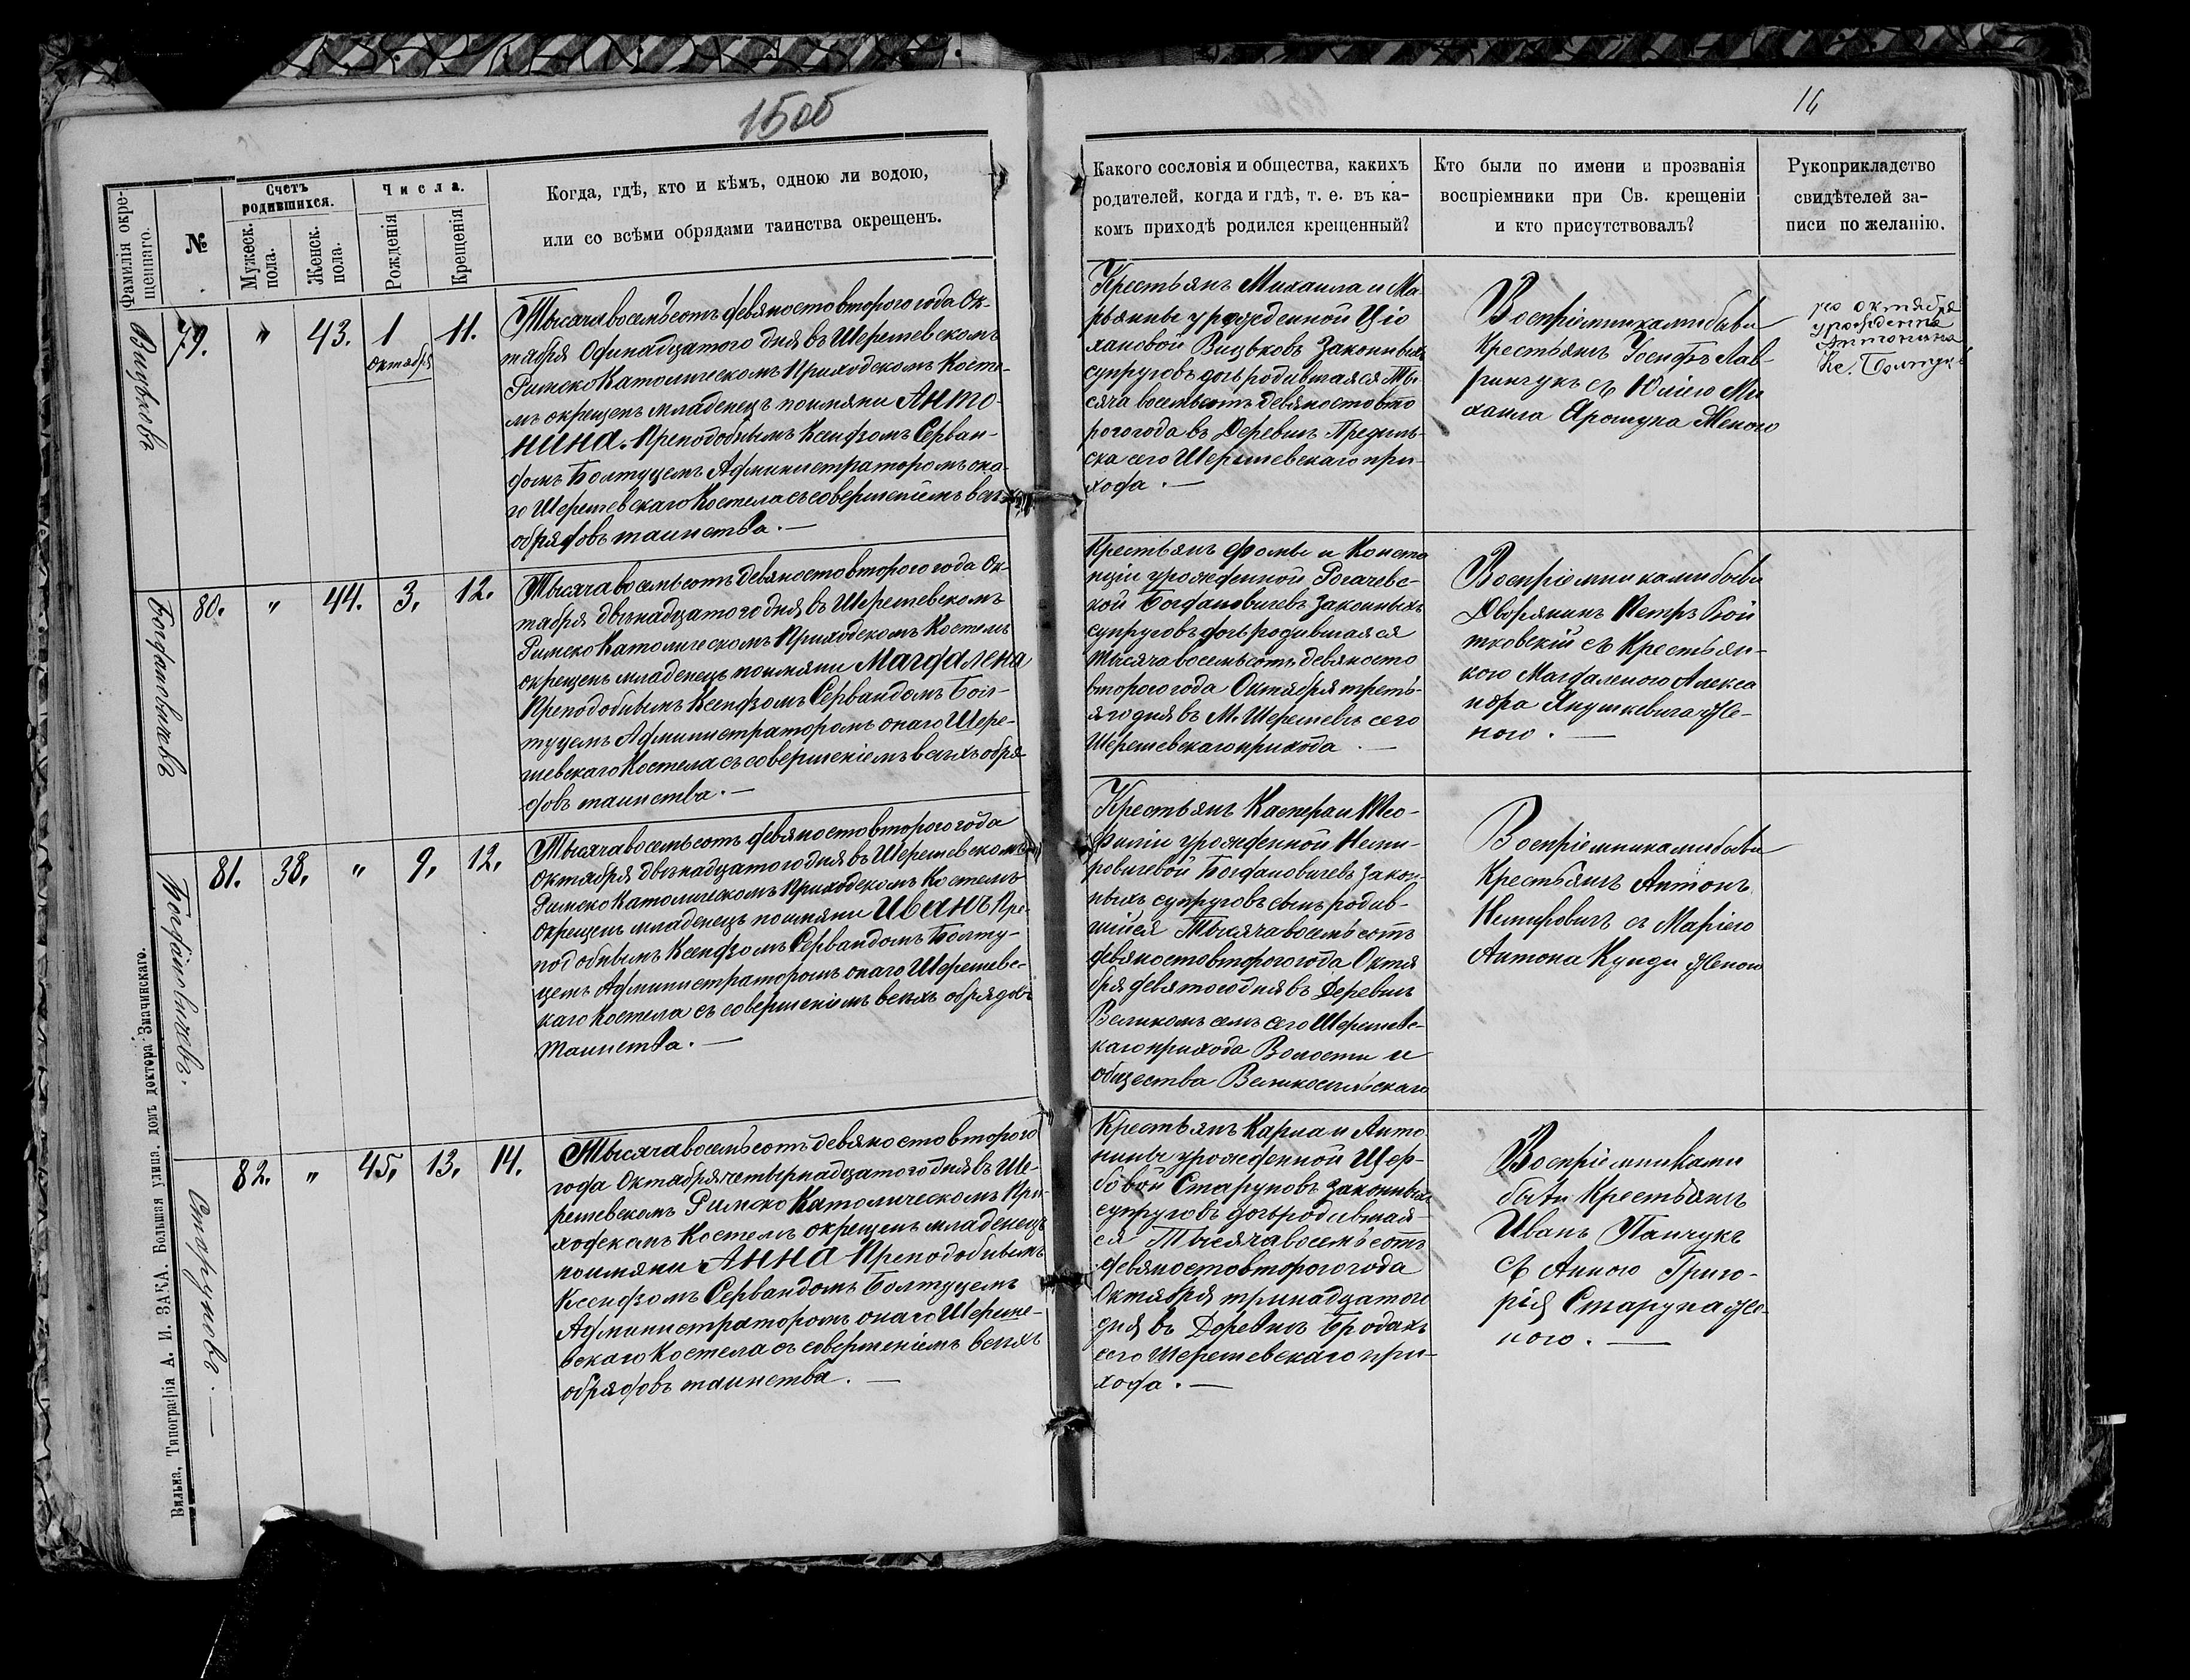 1506
14
Фамилія окре-
щеннаго.
№
Счетъ
родившихся.
Мужеск.
пола.
Женск.
пола.
Числа.
Рожденія
Крещенія
Когда, гдѣ, кто и кѣмъ, одною ли водою,
или со всѣми обрядами таинства окрещенъ.
Какого сословія и общества, какихъ
родителей, когда и гдѣ, т. е. въ ка-
комъ приходѣ родился крещенный?
Кто были по имени и прозванія
воспріемники при Св. крещеніи
и кто присутствовалъ?
Рукоприкладство
свидѣтелей за-
писи по желанію.
79.
"
43.
1
Октября
11.
Тысяча восемьсотъ девяносто втораго года Ок-
тября Одинадцатого дня въ Шерешевскомъ
Римско Католическомъ Приходскомъ Косте-
лѣ окрещенъ младенецъ поимяни Анто-
нина. Преподобнымъ Ксендзомъ Серван-
домъ Болтуцемъ Администраторомъ она-
го Шерешевскаго Костела съ совершеніемъ всѣхъ
обрядовъ таинства. —
Крестьянъ Михаила и Ма-
рьянны урожденной
супруговъ дочь родившаяся Ты-
сяча восемьсотъ девяносто вто
рого года въ Деревнѣ
ска сего Шерешевскаго при-
хода. —
Воспріемниками были
Крестьянъ Іосифъ Лав-
ринчукъ съ Юліею Ми
хаила Ярощука Женою
октября
урожденна
Антонина
Кс. Болтуць
Богдановичевъ
80.
"
44.
3.
12.
Тысяча восемьсотъ девяносто втораго года Ок-
тября двѣнадцатого дня въ Шерешевскомъ
Римско Католическомъ Приходскомъ Костелѣ
окрещенъ младенецъ поимяни Магдалена
Преподобнымъ Ксендзомъ Сервандомъ Бол-
туцемъ Администраторомъ онаго Шере-
шевскаго Костела съ совершеніемъ всѣхъ обря
довъ таинства. —
Крестьянъ Фомы и Конста
нціи урожденной Рогачевс-
кой Богдановичевъ Законныхъ
супруговъ дочь родившаяся
Тысяча восемьсотъ девяносто
втораго года Октября треть-
яго дня въ М. Шерешевѣ сего
Шерешевскаго прихода. —
Воспріемниками были
Дворянинъ Петръ Вой
тковскій съ Крестьян-
кою Магдаленою Алекса
ндра Янушкевича Же-
ною. —
Богдановичевъ.
81.
38.
"
9.
12.
Тысяча восемьсотъ девяносто втораго года
Октября двѣнадцатого дня въ Шерешевскомъ
Римско Католическомъ Приходскомъ Костелѣ
Окрещенъ младенецъ поимяни Иванъ Пре-
подобнымъ Ксендзомъ Сервандомъ Болту-
цемъ Администраторомъ онаго Шерешевс-
каго Костела съ совершеніемъ всѣхъ обрядовъ
Таинства. —
Крестьянъ Каспера и Тео-
филіи урожденной Неми-
ровичевой Богдановичевъ Закон-
ныхъ супруговъ сынъ родив-
шійся Тысяча восемьсотъ
девяносто втораго года Октя
бря девятого дня въ Деревнѣ
Великомъ селѣ сего Шерешевс-
каго прихода Волости и
общества Великосельскаго
Воспріемниками были
Крестьянъ Антонъ
Немировичъ съ Маріею
Антона Кунди Женою
Старуновъ. —
82.
"
45.
13.
14.
Тысяча восемьсотъ девяносто втораго
года Октября четырнадцатого дня въ Ше-
решевскомъ Римско Католическомъ При-
ходскомъ Костелѣ окрещенъ младенецъ
поимяни Анна Преподобнымъ
Ксендзомъ Сервандомъ Болтуцемъ
Администраторомъ онаго Шереше-
вскаго Костела съ совершеніемъ всѣхъ
обрядовъ таинства. —
Крестьянъ Карла и Анто
нины урожденной Щер-
бовой Старуновъ Законныхъ
супруговъ дочь родившай-
ся Тысяча восемьсотъ
девяносто втораго года
Октября тринадцатого
дня въ Деревнѣ Бродахъ
сего Шерешевскаго при-
хода. —
Воспріемниками
были Крестьянъ
Иванъ Панчукъ
съ Анною Григо-
рія Старуна Же-
ною. —
Вильна, Типографія А. И. ЗАКА. Большая улица, домъ доктора Значинскаго.